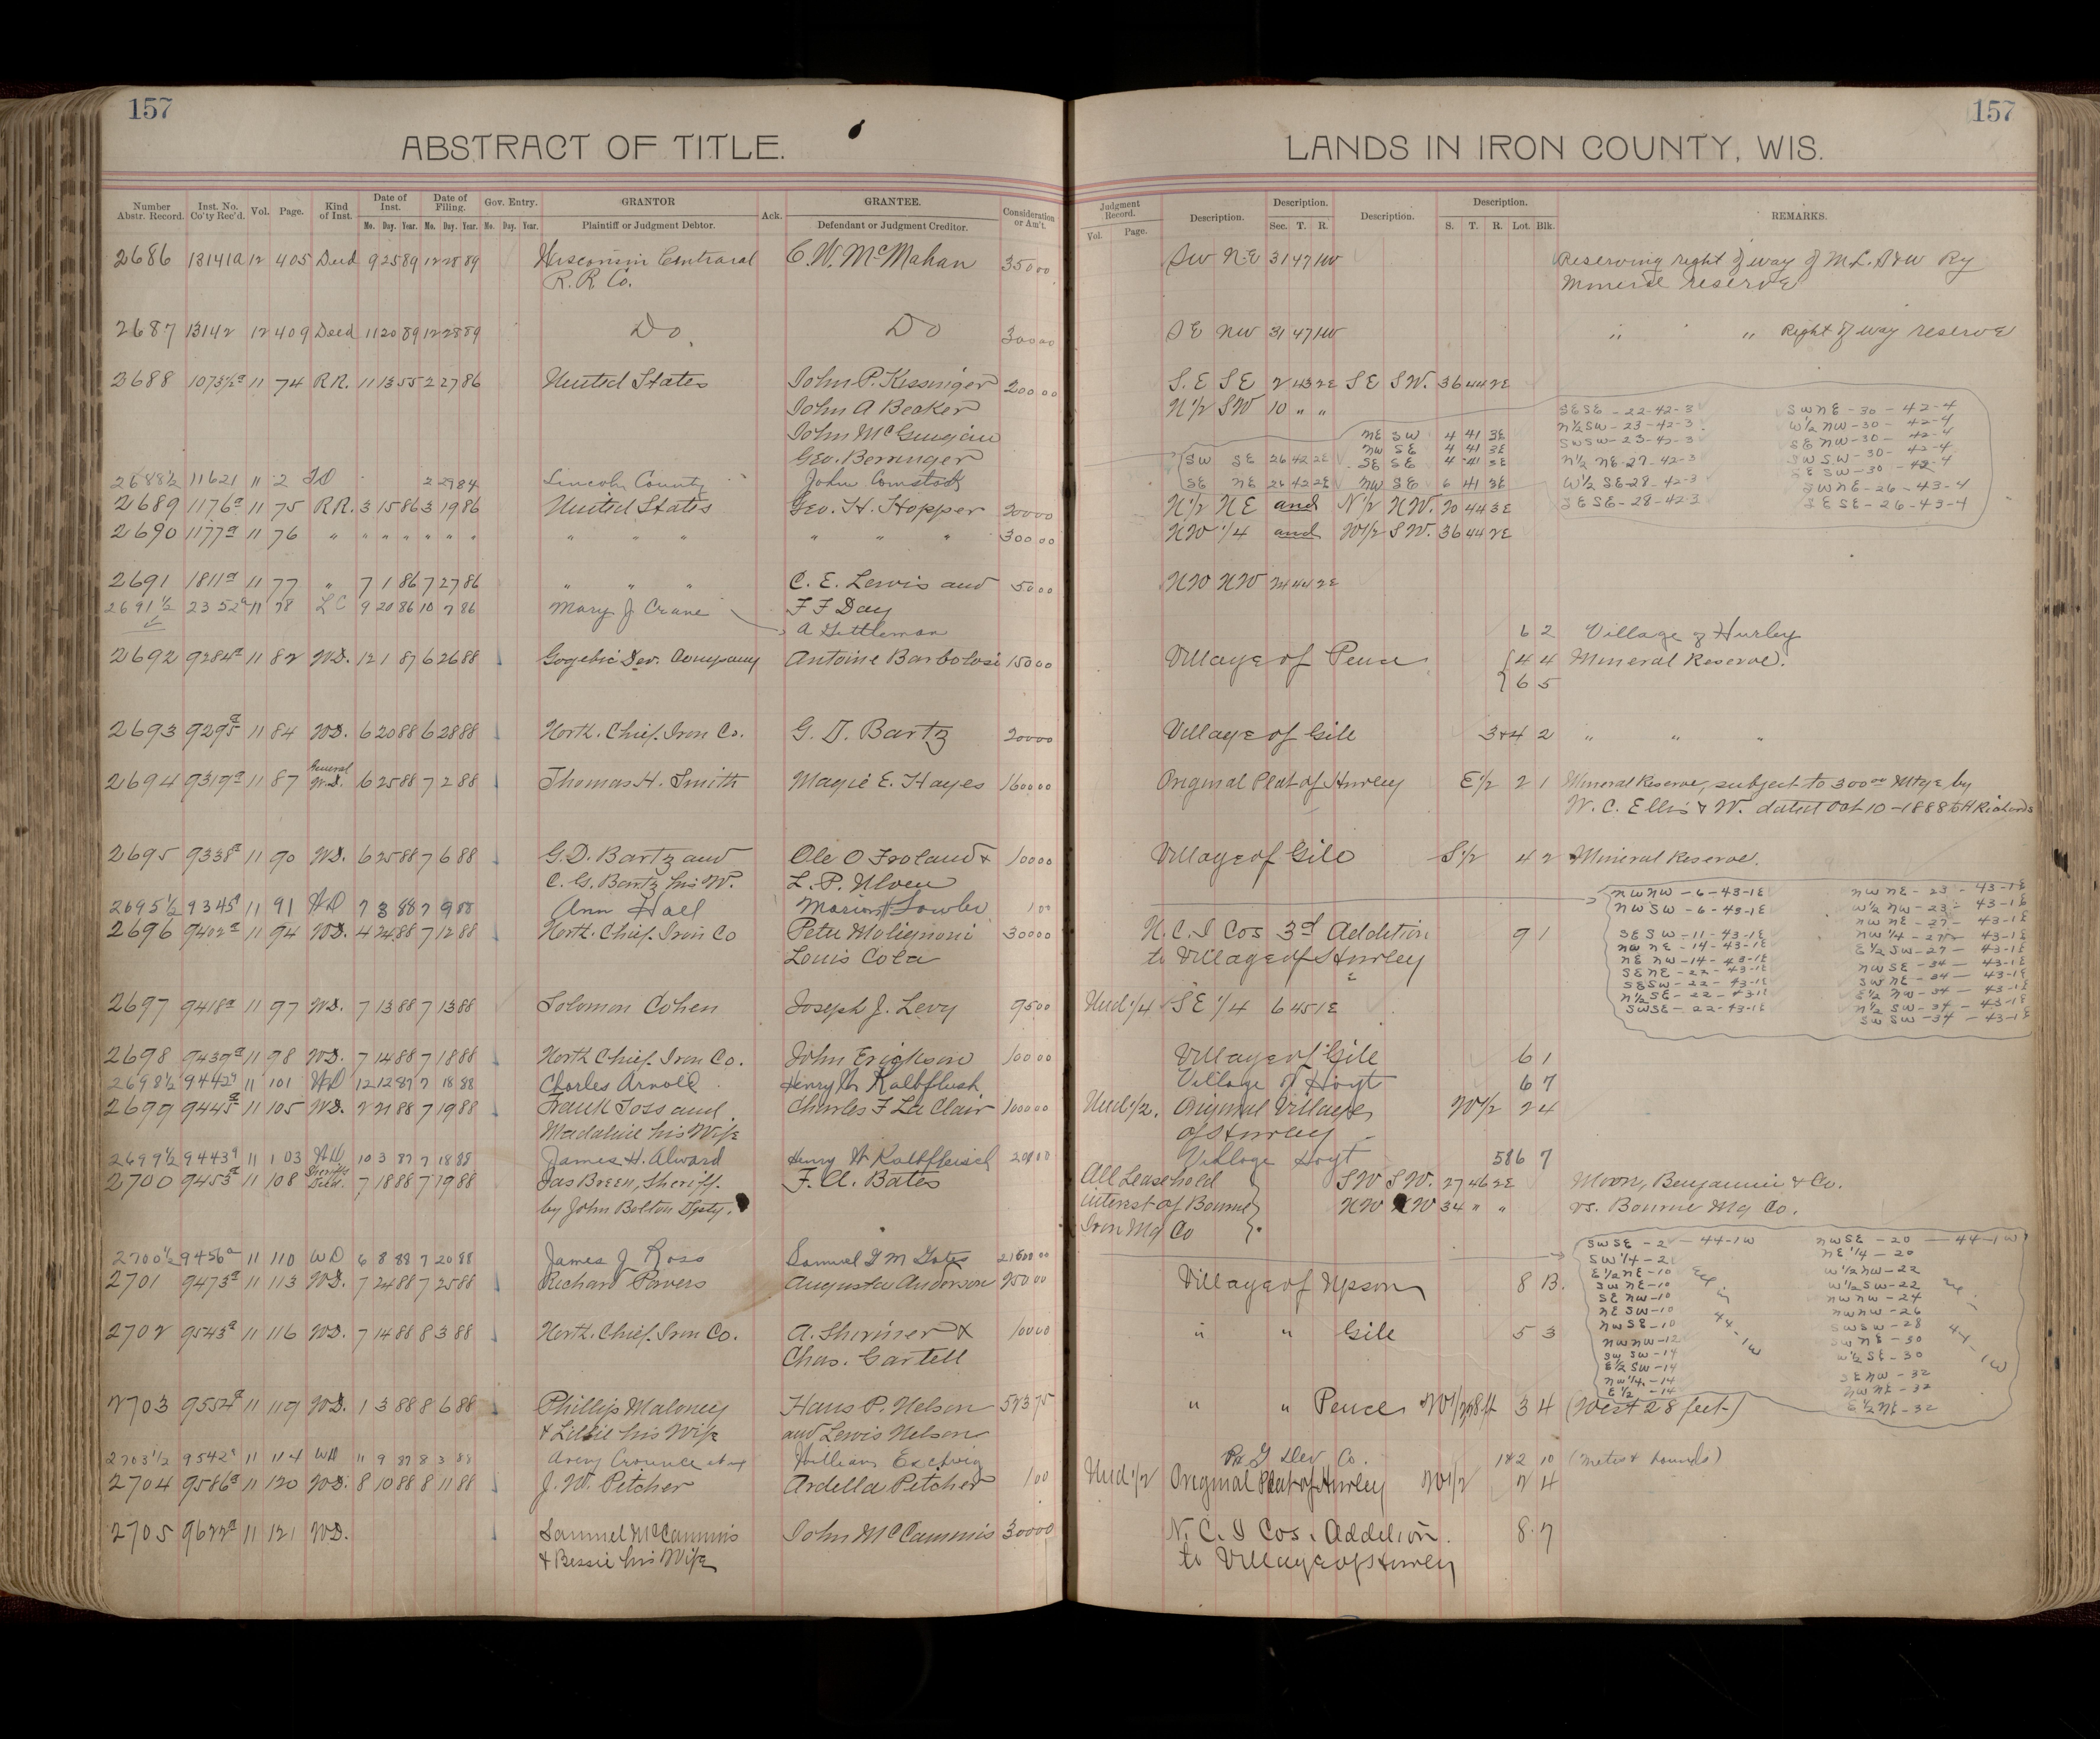 157
157
ABSTRACT OF TITLE.
LANDS IN IRON COUNTY, WIS.
Number Abstr. Record. Inst. No. Co'ty Rec'd. Vol. Page. Kind of Inst. Date of Inst. Mo. Day. Year. Date of Filing. Mo. Day. Year. Gov. Entry. Mo. Day. Year. GRANTOR Plaintiff or Judgment Debtor. Ack. GRANTEE. Defendant or Judgment Creditor. Consideration or Am't.
Judgment Record. Vol. Page. Description. Description. Sec. T. R. Description. Description. S. T. R. Lot. Blk. REMARKS.
2686 13141a 12 405 Deed 9 25 89 12 28 89 Wisconsin Centraral C. W. McMahan 350 00 SW NE 31 47 1W Reserving right of way of M. L. S & W Ry
R. R. Co. Mineral reserve
2687 13142 12 409 Deed 11 20 89 12 28 89 Do Do 300 00 SE NW 31 47 1W " " " Right of way reserve
2688 11 74 RR. 11 13 55 2 27 86 United States John P. Kissinger 200 00 S.E SE 2 43 2E SE SW. 36 44 2E
John A Becker N 1/2 SW 10 " "
John McGuigan NE SW 4 41 3E
Geo. Berringer NW SE 4 41 3E
SW SE 26 42 2E SE SE 4 41 3E
SESE - 22-42-3 SWNE - 30 - 42-4
N½SW - 23 - 42-3 W½ NW - 30 - 42-4
SWSW - 23-42-3 SENW - 30 - 42-4
N½ NE-27-42-3 SWSW - 30 - 42-4
SESW - 30 - 42-4
W½ SE-28-42-3 SWNE - 26 - 43-4
SESE - 28-42-3 SESE - 26 - 43-4
2688½ 11621 11 2 2 29 84 Lincoln County John Comstock SE NE 26 42 2E NW SE 6 41 3E
2689 1176a 11 75 RR. 3 15 86 3 19 86 United States Geo. H. Hopper 200 00 N 1/2 NE and N/2 NW. 20 44 3E
2690 1177a 11 76 " " " " " " " " " " " " " 300 00 NW 1/4 and W1/2 SW. 36 44 2E
2691 1811a 11 77 " 7 1 86 7 27 86 " " " C. E. Lewis and 50 00 NW NW 24 44 2E
2691½ 2352a 11 78 LC 9 20 86 10 7 86 Mary J. Crane F F Day
A Gettleman 6 2 Village of Hurley
2692 9284a 11 82 WD. 12 1 87 6 26 88 Gogebic Dev. Company Antoine Barbolosi 150 00 Village of Pence { 4 4 Mineral Reserve.
{ 6 5
2693 9295a 11 84 WD. 6 20 88 6 28 88 North. Chief. Iron Co. G. D. Bartz 200 00 Village of Gile 3+4 2 " " "
2694 9319a 11 87 General W.D. 6 25 88 7 2 88 Thomas H. Smith Magie E. Hayes 1600 00 Original Plat of Hurley E1/2 2 1 Mineral Reserve, subject to 300 00 Mtge by
W. C. Ellis & W. dated Oct 10 - 1888 to H Richards
2695 9338a 11 90 WD. 6 25 88 7 6 88 G. D. Bartz and Ole O Froland & 100 00 Village of Gile S1/2 4 2 Mineral Reserve.
C. G. Bartz his W. L. P. Ulven
2695½ 9345a 11 91 WD 7 3 88 7 9 88 Ann Hall Marion Fowler 1 00
2696 9402a 11 94 WD. 4 24 88 7 12 88 North. Chief. Iron Co Peter Molignoni 300 00 N. C. I Cos 3d Addition 9 1
Louis Cola to Village of Hurley
NWNW - 6-43-1E NWNE - 23 - 43-1E
NWSW - 6-43-1E W½ NW - 23 - 43-1E
NWNE - 27 - 43-1E
SESW - 11-43-1E NW¼ - 27 - 43-1E
NW NE - 14-43-1E E½SW - 27 - 43-1E
NE NW - 14-43-1E NWSE - 34 - 43-1E
SENE - 22-43-1E SWNE - 34 - 43-1E
SESW - 22-43-1E E½ NW - 34 - 43-1E
N½SE - 22-43-1E N½ SW - 34 - 43-1E
SWSE - 22-43-1E SWSW - 34 - 43-1E
2697 9418a 11 97 WD. 7 13 88 7 13 88 Solomon Cohen Joseph J. Levy 95 00 Und 1/4 SE 1/4 6 45 1E
2698 9437a 11 98 WD. 7 14 88 7 18 88 North Chief. Iron Co. John Erickson 100 00 Village of Gile 6 1
2698½ 9442a 11 101 WD 12 12 87 7 18 88 Charles Arnold Henry W Kalbflush Village of Hoyt 6 7
2699 9445a 11 105 WD. 2 21 88 7 19 88 Frank Foss and Charles F La Clair 1000 00 Und 1/2. Original Village W1/2 2 4
Madaline his Wife of Hurley
2699½ 9443a 11 103 WD 10 3 87 7 18 88 James H. Alward Henry W Kalbfleisch Village Hoyt 5&6 7
2700 9453a 11 108 Sheriffs Deed. 7 18 88 7 19 88 Jas Breen, Sheriff. F. A. Bates All Leasehold SW SW. 27 46 2E Moon, Benjamin & Co.
by John Bolton Dpty. interest of Bourne NW NW 34 " " vs. Bourne Mg Co.
Iron Mg Co
2700½ 9456a 11 110 WD 6 8 88 7 20 88 James J Ross Samuel G M Gates 21600 00
2701 9473a 11 113 WD. 7 24 88 7 25 88 Richard Powers Augusta Anderson 250 00 Village of Upson 8 B.
SWSE - 2 - 44-1W NWSE - 20 - 44-1W
SW¼ - 2 NE¼ - 20
E½NE - 10 W½NW - 22
SWNE - 10 W½SW - 22
SENW - 10 NWNW - 24
NESW - 10 NWNW - 26
NWSE - 10 SWSW - 28
NWNW - 12 SWNE - 30
SWSW - 14 W½SE - 30
E½SW - 14 SENW - 32
NW¼ - 14 NWNE - 32
E½ - 14 E½NE - 32
44-1W 44-1W
2702 9543a 11 116 WD. 7 14 88 8 3 88 North. Chief. Iron Co. A. Shriner & 100 00 " " Gile 5 3
Chas. Gartell
2703 9554a 11 119 WD. 1 3 88 8 6 88 Phillip Maloney Hans P. Nelson 523 75 " " Pence W1/2 28 ft 3 4 (West 28 feet)
& Lillie his Wife and Lewis Nelson
2703½ 9542a 11 114 WD 11 9 87 8 3 88 Avery Crounce William Dev Co. 1&2 10 (Metes & bounds)
2704 9586a 11 120 WD. 8 10 88 8 11 88 J. W. Pitcher Ardella Pitcher 1 00 Und 1/2 Original Plat of Hurley W1/2 2 4
2705 9622a 11 121 WD. Samuel McCammis John McCammis 300 00 N. C. I Cos. Addition. 8 7
& Bessie his Wife to Village of Hurley